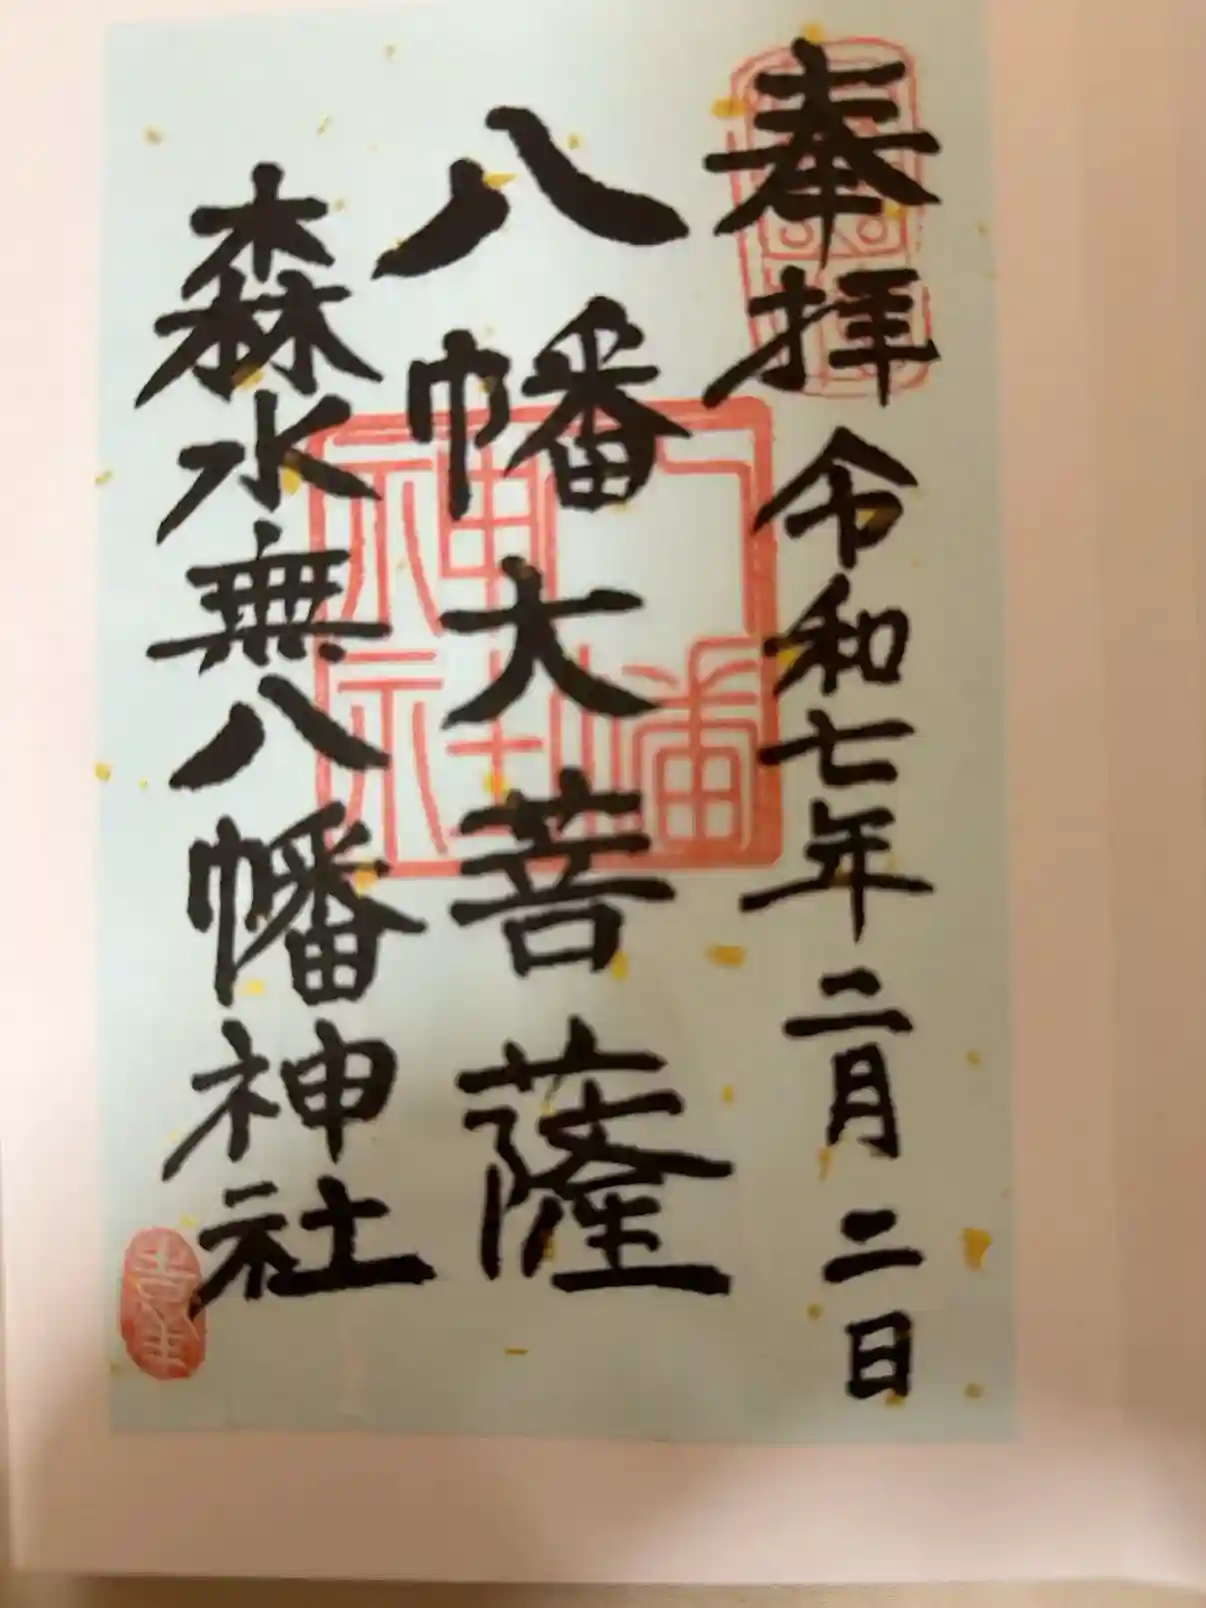 奉拝 令和七年 二月 二日
八幡大菩薩
森水無八幡神社
八幡神社